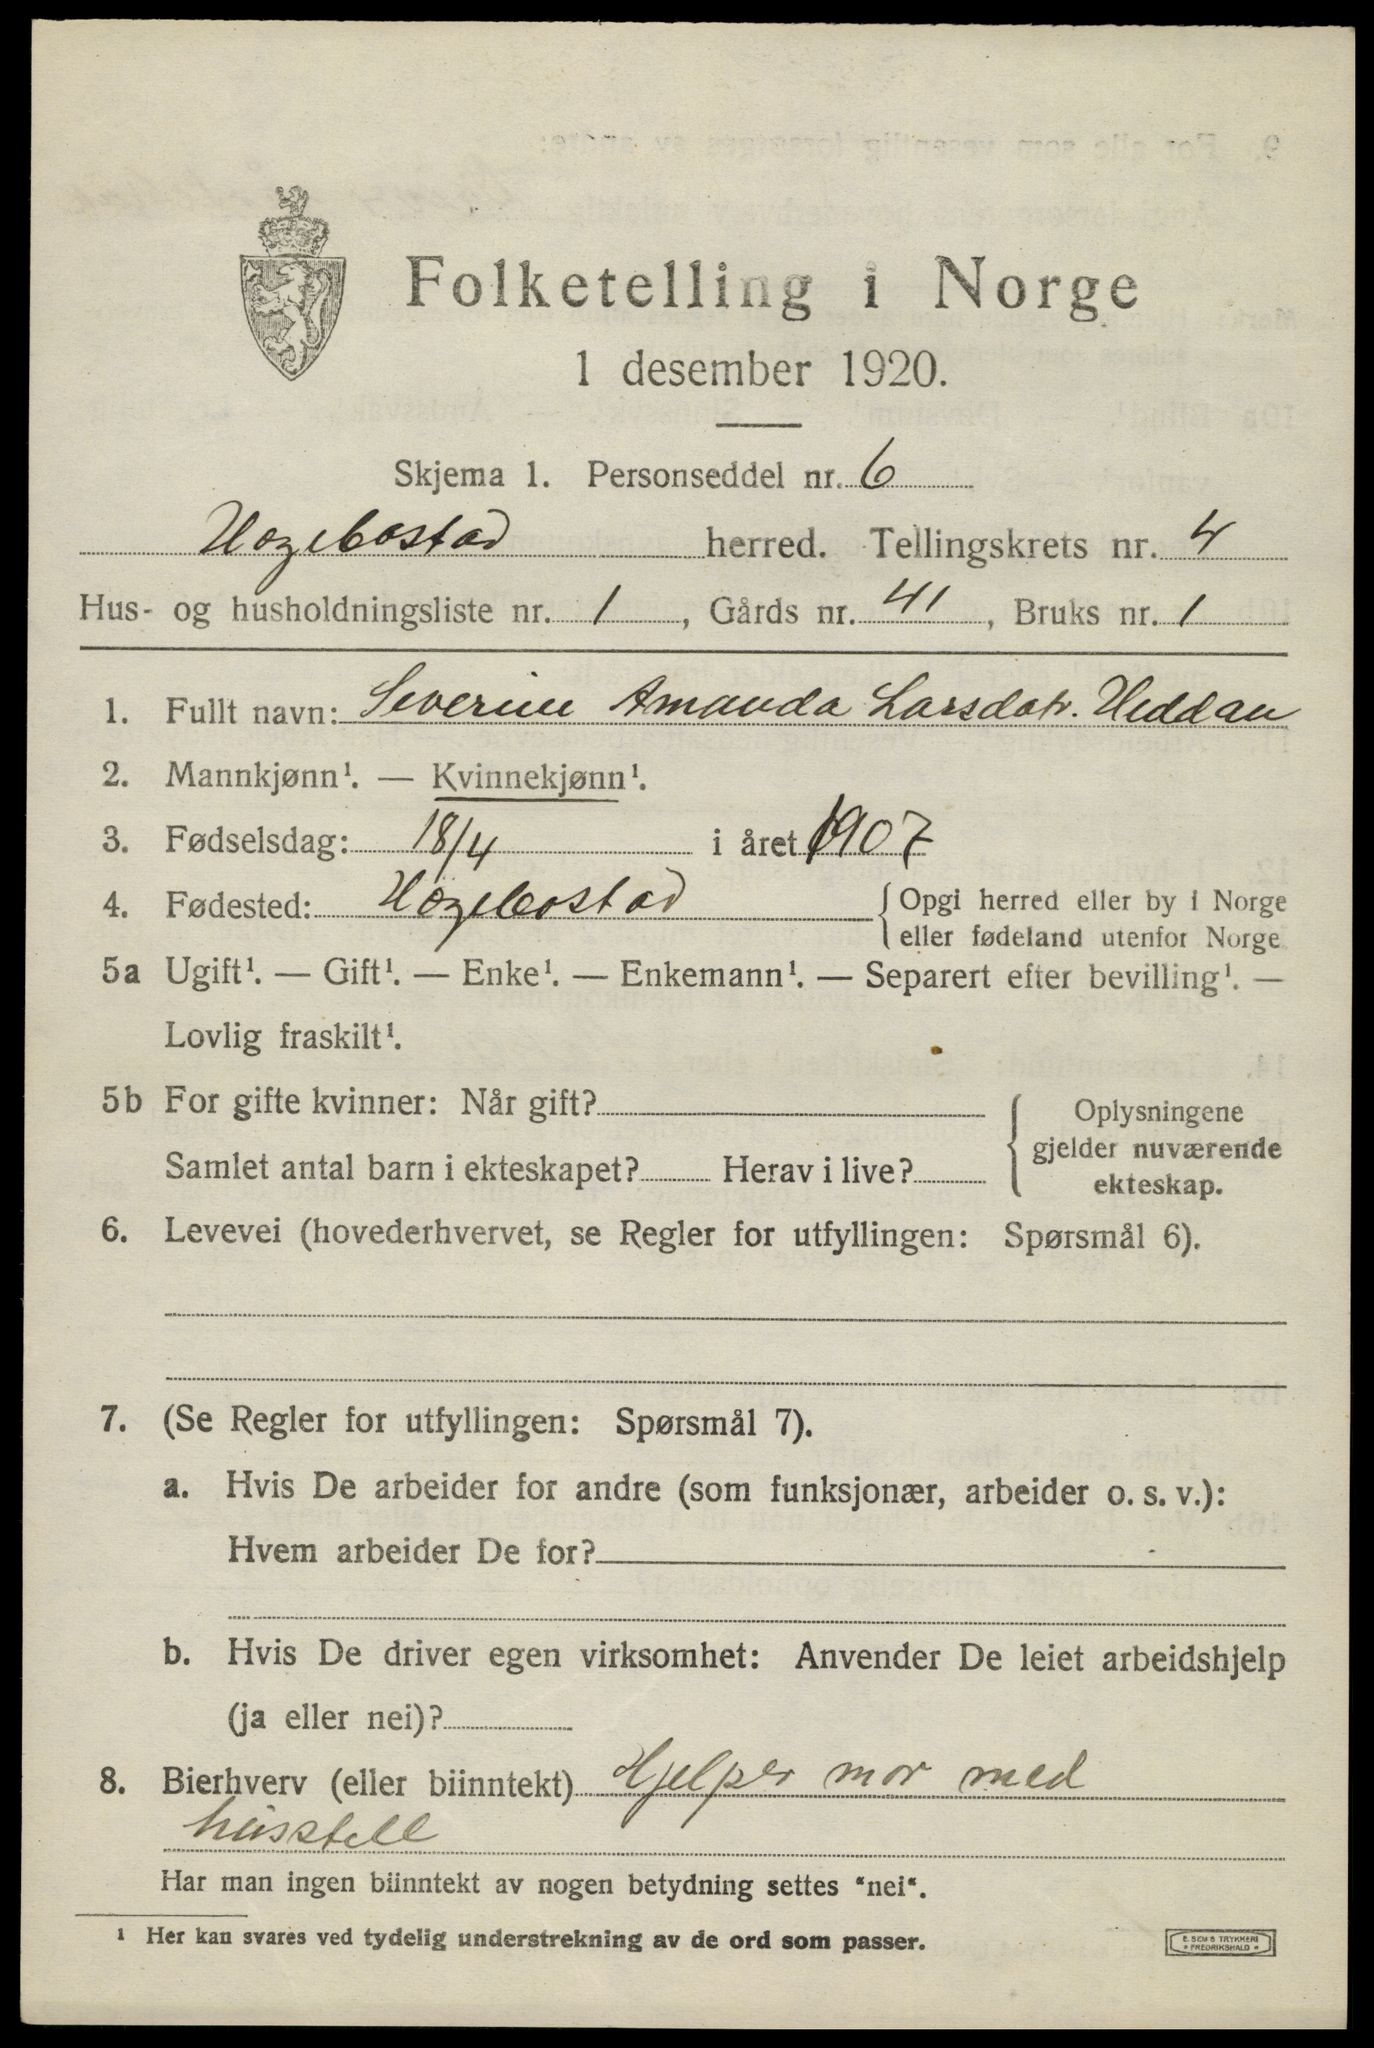 Folketelling i Norge
1 desember 1920.
Skjema 1. Personseddel nr. 6
Hægebostad herred. Tellingskrets nr. 4
Hus- og husholdningsliste nr. 1, Gårds nr. 41, Bruks nr. 1
1. Fullt navn: Severine Amanda Larsdotr. Heddan
2. Mannkjønn¹. — Kvinnekjønn¹.
3. Fødselsdag: 18/4 i året 1907
4. Fødested: Hægebostad { Opgi herred eller by i Norge
eller fødeland utenfor Norge
5a Ugift¹. — Gift¹. — Enke¹. — Enkemann¹. — Separert efter bevilling¹. —
Lovlig fraskilt¹.
5b For gifte kvinner: Når gift?
Samlet antal barn i ekteskapet? Herav i live?
Oplysningene
gjelder nuværende
ekteskap.
6. Levevei (hovederhvervet, se Regler for utfyllingen: Spørsmål 6).
7. (Se Regler for utfyllingen: Spørsmål 7).
a. Hvis De arbeider for andre (som funksjonær, arbeider o. s. v.):
Hvem arbeider De for?
b. Hvis De driver egen virksomhet: Anvender De leiet arbeidshjelp
(ja eller nei)?
8. Bierhverv (eller biinntekt) Hjelper mor med
husstell
Har man ingen biinntekt av nogen betydning settes "nei".
¹ Her kan svares ved tydelig understrekning av de ord som passer.
E. SEM'S TRYKKERI
FREDRIKSHALD